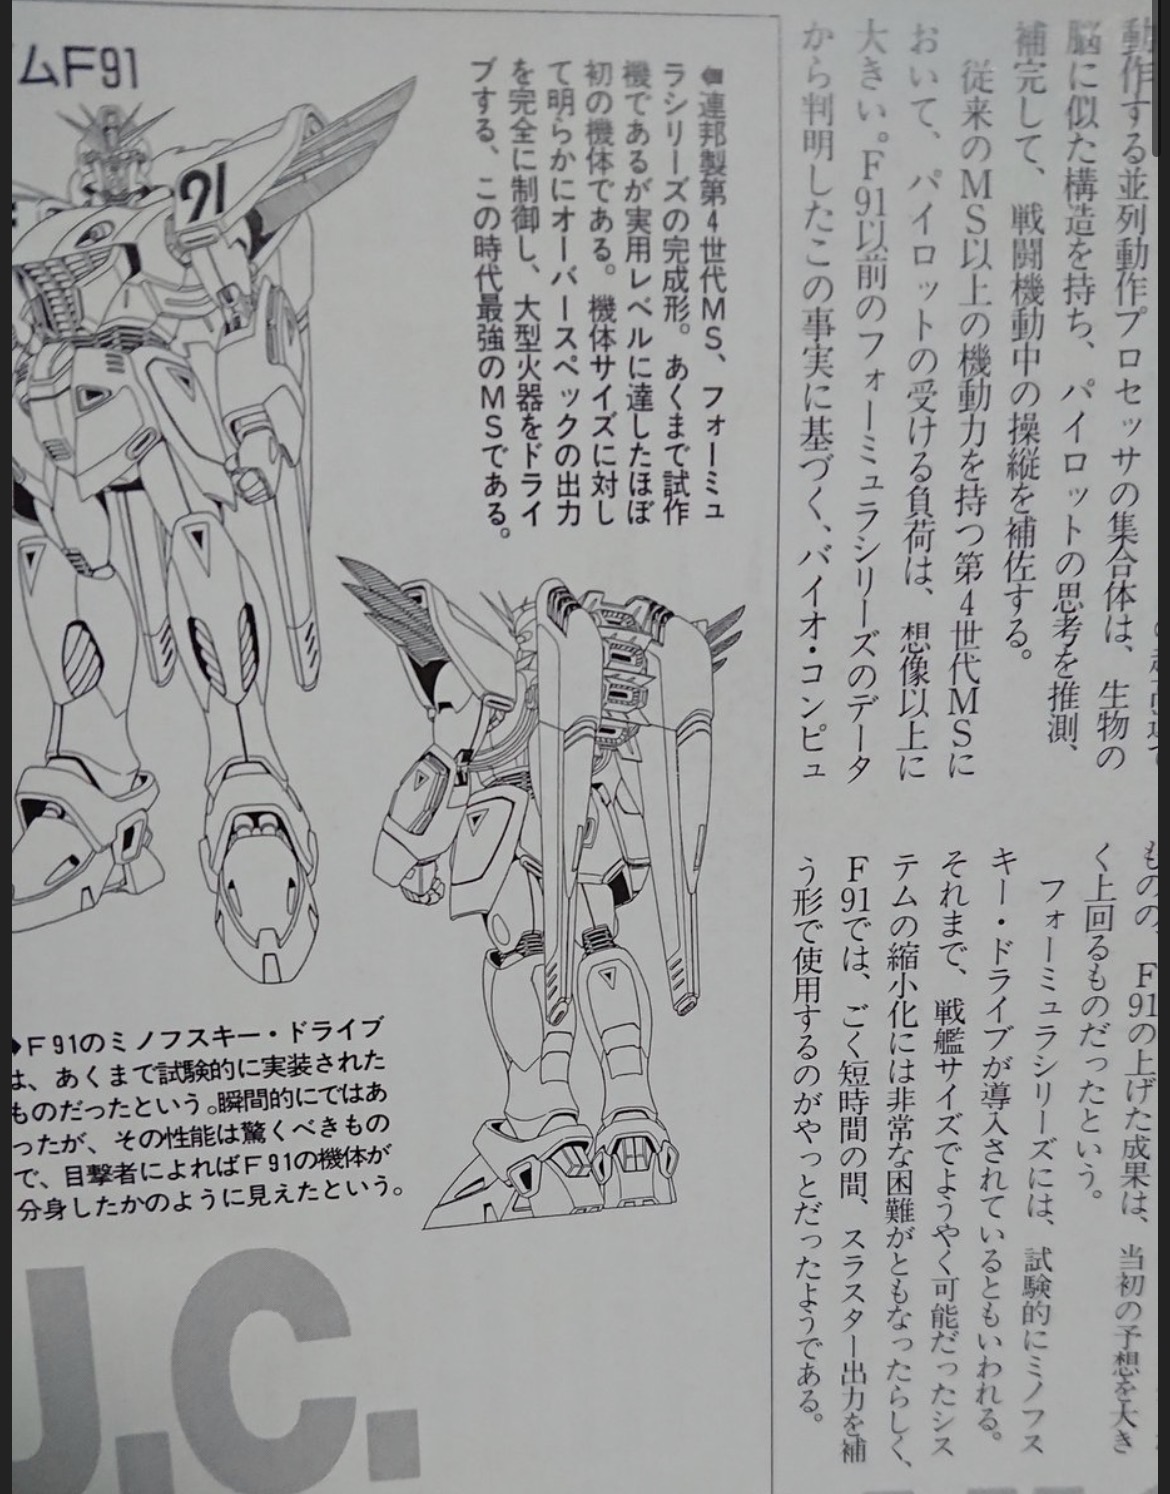 動作する並列動作プロセッサの集合体は、生物の
脳に似た構造を持ち、パイロットの思考を推測、
補完して、戦闘機動中の操縦を補佐する。
従来のMS以上の機動力を持つ第4世代MSに
おいて、パイロットの受ける負荷は、想像以上に
大きい。F91以前のフォーミュラシリーズのデータ
から判明したこの事実に基づく、バイオ・コンピュ
ものの、F91の上げた成果は、当初の予想を大き
く上回るものだったという。
フォーミュラシリーズには、試験的にミノフス
キー・ドライブが導入されているともいわれる。
それまで、戦艦サイズでようやく可能だったシス
テムの縮小化には非常な困難がともなったらしく、
F91では、ごく短時間の間、スラスター出力を補
う形で使用するのがやっとだったようである。
ムF91
91
連邦製第4世代MS、フォーミュ
ラシリーズの完成形。あくまで試作
機であるが実用レベルに達したほぼ
初の機体である。機体サイズに対し
て明らかにオーバースペックの出力
を完全に制御し、大型火器をドライ
ブする、この時代最強のMSである。
◆F91のミノフスキー・ドライブ
は、あくまで試験的に実装された
ものだったという。瞬間的にではあ
ったが、その性能は驚くべきもの
で、目撃者によればF91の機体が
分身したかのように見えたという。
U.C.